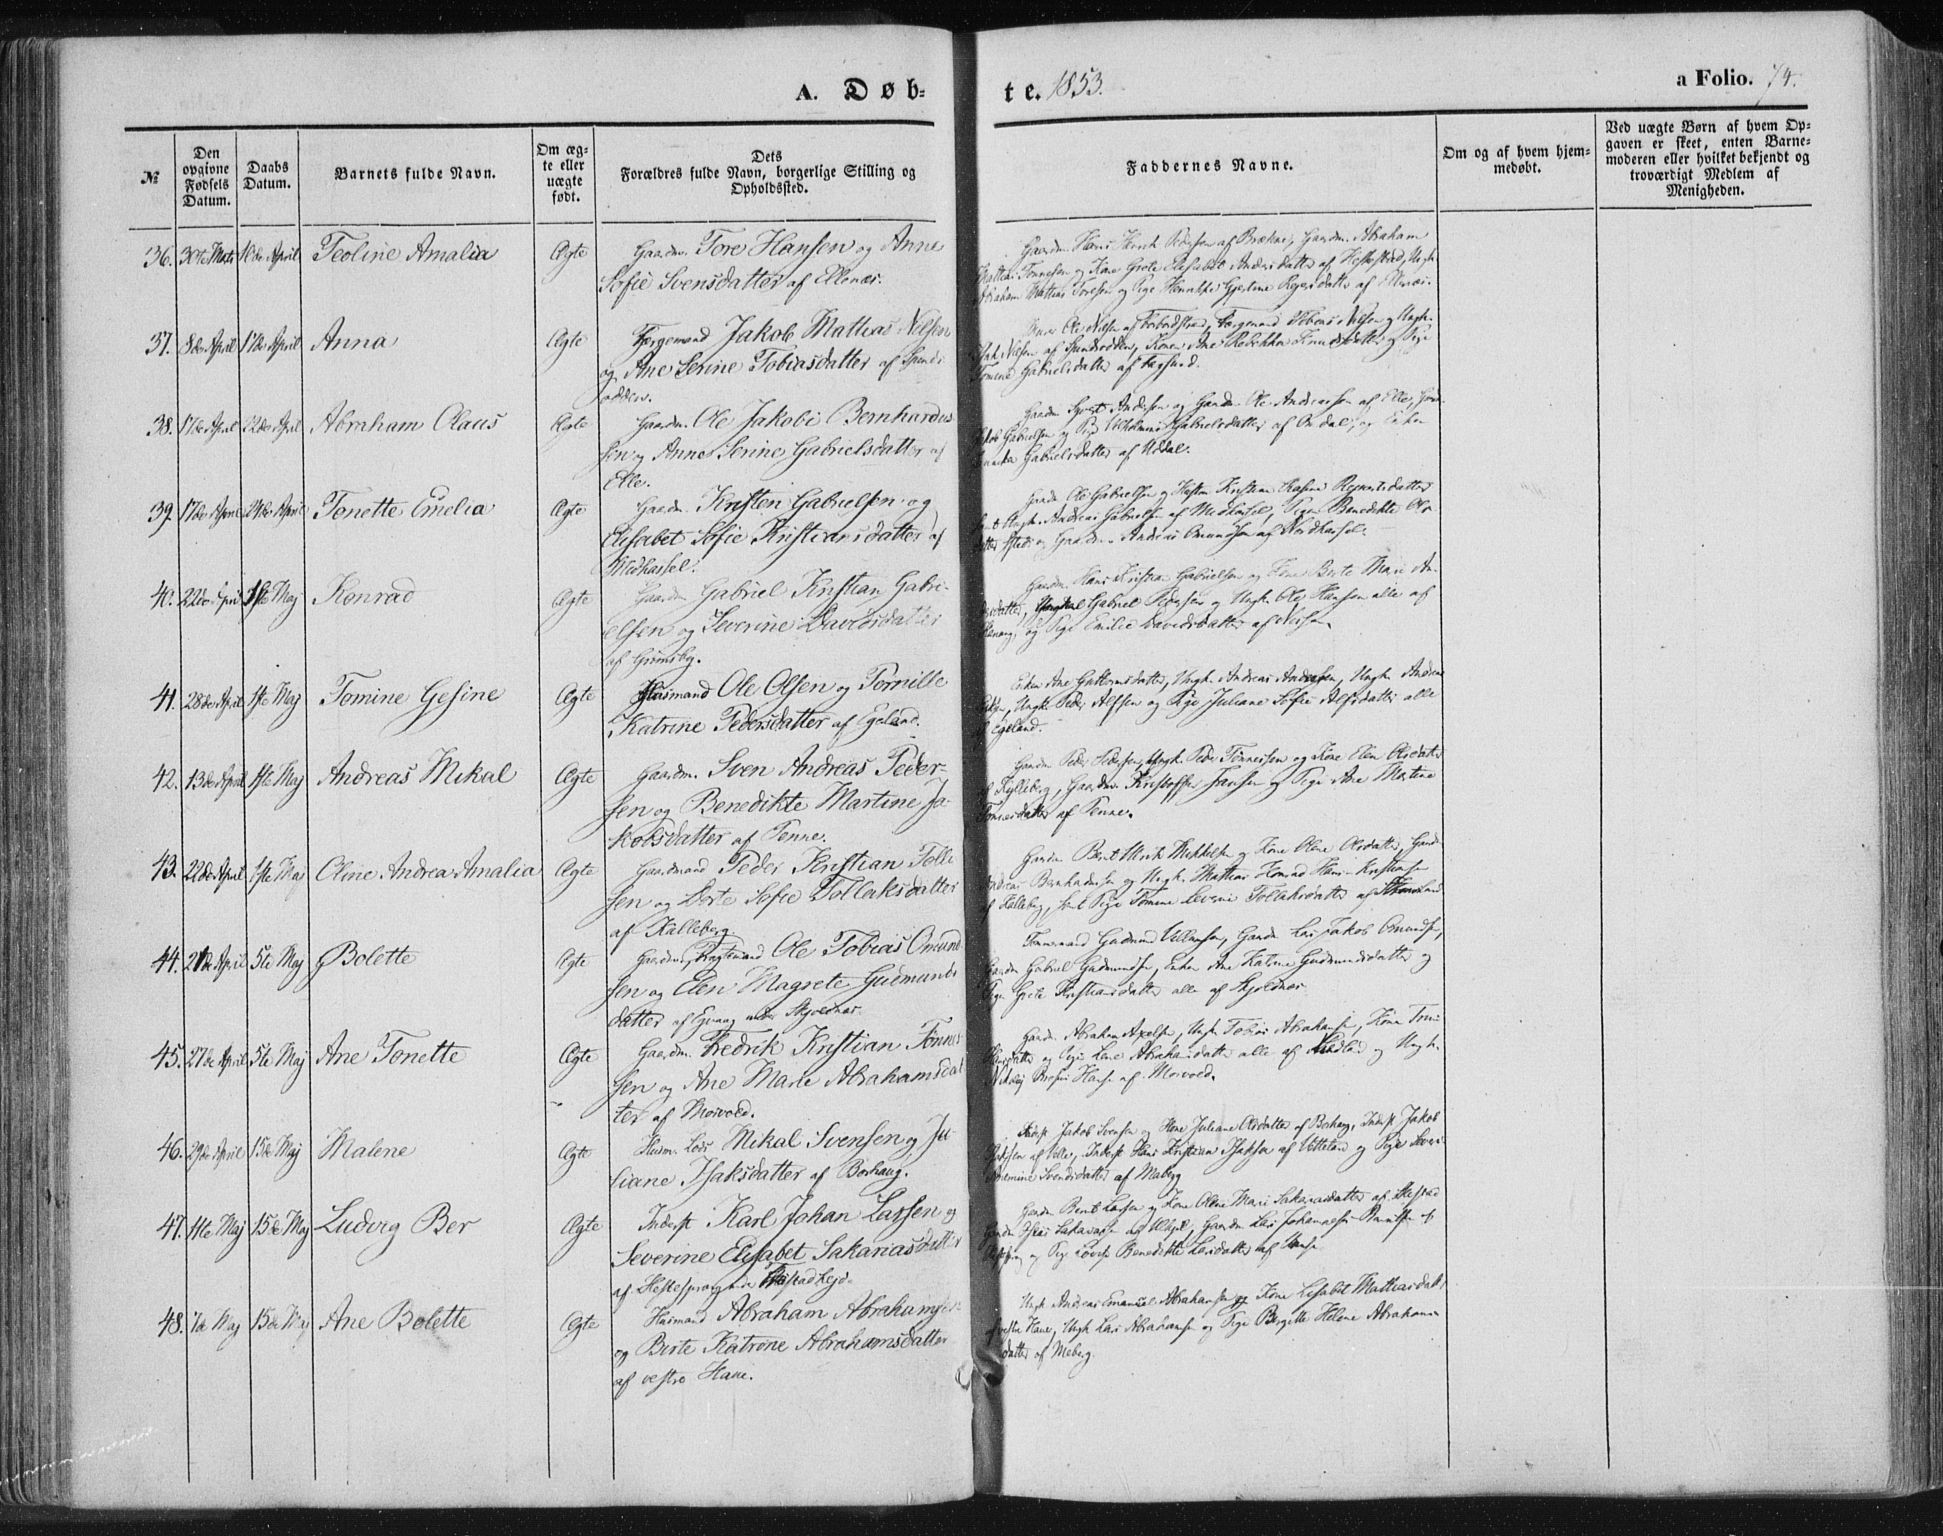 A. Døb-
te. 1853.
a Folio. 74.
№
Den opgivne Fødsels Datum.
Daabs Datum.
Barnets fulde Navn.
Om ægte eller uægte født.
Dets Forældres fulde Navn, borgerlige Stilling og Opholdssted.
Faddernes Navne.
Om og af hvem hjemmedøbt.
Ved uægte Børn af hvem Opgaven er skeet, enten Barnemoderen eller hvilket bekjendt og troværdigt Medlem af Menigheden.
36. 30te Marts 10de April Teoline Amalia Ægte Gaardm. Tore Hansen og Anne
Sofie Svensdatter af Ellenæs.
Gaardm. Hans Henrik Pedersen af Brekne, Gaardm. Abraham
Mattias Tønnesen og Kone Grete Elisabet Andersdatter af Hestestad, Ungk.
Abraham Mattias Toresen og Pige
37. 8de April 17de April Anna Ægte Færgemand Jakob Mattias Nilsen
og Ane Serine Tobiasdatter af Spinds
odden.
Ole Nilsen af Farbrodstad, Færgemand Tobias Nilsen og Ungk.
Nilsen af Spindsodden, Konen Ane Rebekka Knudsdatter og Pige
Tomine Gabrielsdatter af
38. 17de April 22de April Abraham Olaus Ægte Gaardm. Ole Jakobi Bernhardus
sen og Anne Serine Gabrielsdatter af
Elle.
Gaardm. Syvert Andersen og Gaardm. Ole Andreassen af Elle,
Jakob Gabrielsen og Pige Vilhelmine Gabrielsdatter af Omdal, og Enken
Gabrielsdatter af Uddal.
39. 17de April 24de April Tonette Emelia Ægte Gaardm. Kristen Gabrielsen og
Elisabet Sofie Kristiansdatter af
Midhassel.
Gaardm. Ole Gabrielsen og Kristine Rasine
Ungk. Andreas Gabrielsen af Midhassel, Pige Benedikte Ols
datter og Gaardm. Andreas Omundsen af Nordhassel.
40. 22de April 1ste Maj Konrad Ægte Gaardm. Gabriel Kristian Gabri-
elsen og Severine Davidsdatter
af Grimsby.
Gaardm. Hans Kristian Gabrielsen og Kone Berte Marie An-
dersdatter, Gabriel Pedersen og Ungk. Ole Hansen alle af
og Pige Emilie Davidsdatter af
41. 28de April 1ste Maj Tomine Gesine Ægte Husmand Ole Olsen og Pernille
Katrine Pedersdatter af Egeland.
Enken Ane Guttormsdatter, Ungk. Andreas Andersen, Ungk. Andreas
Ungk. Peder Alfsen og Pige Juliane Sofie Alfsdatter alle
af Egeland.
42. 13de April 1ste Maj Andreas Mikal Ægte Gaardm. Sven Andreas Peder-
sen og Benedikte Martine Ja-
kobsdatter af Penne.
Gaardm. Peder Pedersen, Ungk. Peder Tønnessen og Kone Elen Olsdatter
af Kylleberg, Gaardm. Kristoffer Jansen og Pige Ane Martine
af Penne.
43. 22de April 1ste Maj Oline Andrea Amalia Ægte Gaardmand Peder Kristian Tolli
sen og Berte Sofie Tollaksdatter
af Kalleberg
Gaardm. Bent Ulrik Mikkelsen og Kone Olene Olsdatter, Gaardm.
Andreas Bernhardsen og Ungk. Mattias Konrad Hans-Kristiansen
af Kalleberg, samt Pige Tomine Severine Tollaksdatter af
44. 21de April 5te Maj Bolette Ægte Gaardm. Ole Tobias Omund
sen og Elen Magrete Gudmunds
datter af Egvaag under Skjoldnæs.
Gudmund Villumsen, Gaardm. Lars Jakob Omundsen,
Gaardm. Gabriel Gudmundsen, Enken Ane Katrine Gudmundsdatter og
Pige Grete Kristiansdatter alle af Skjoldnæs
45. 27de April 5te Maj Ane Tonette Ægte Gaardm. Fredrik Kristian Tønnes
sen og Ane Marie Abrahamsdat
ter af Morvold.
Gaardm. Abraham Axelsen, Ungk. Tobias Abrahamsen, Kone
og Pige Lene Abrahamsdatter alle af og Ungk.
Nikolaj Hansen af Morvold.
46. 29de April 15de Maj Malene Ægte Husm. Lods Mikal Svensen og Ju-
liane Isaksdatter af Borhaug.
Inderst Jakob Svensen og Kone Juliane Olsdatter af Borhaug, Inderst Jakob
Inderst Hans Kristian Isaksen af Vetteland og Pige
Svendsdatter af Maberg
47. 11te Maj 15de Maj Ludvig Ber Ægte Inderst Karl Johan Larsen og
Severine Elisabet Sakariasdatter
af
Gaardm. Bent Larsen og Kone Olene Marie Sakariasdatter af
Gaardm. Lars Johannes Berntsen af
og Pige Lovise Benedikte Larsdatter af
48. 7de Maj 15de Maj Ane Bolette Ægte Husmand Abraham Abrahamsen
og Berte Katrine Abrahamsdatter
af vestre Hane.
Ungk. Andreas Emanuel Abrahamsen og Kone Lisabet Mathiasdatter
af vestre Hane, Ungk. Lars Abrahamsen og Pige Birgitte Helene Abrahams
datter af Meberg.